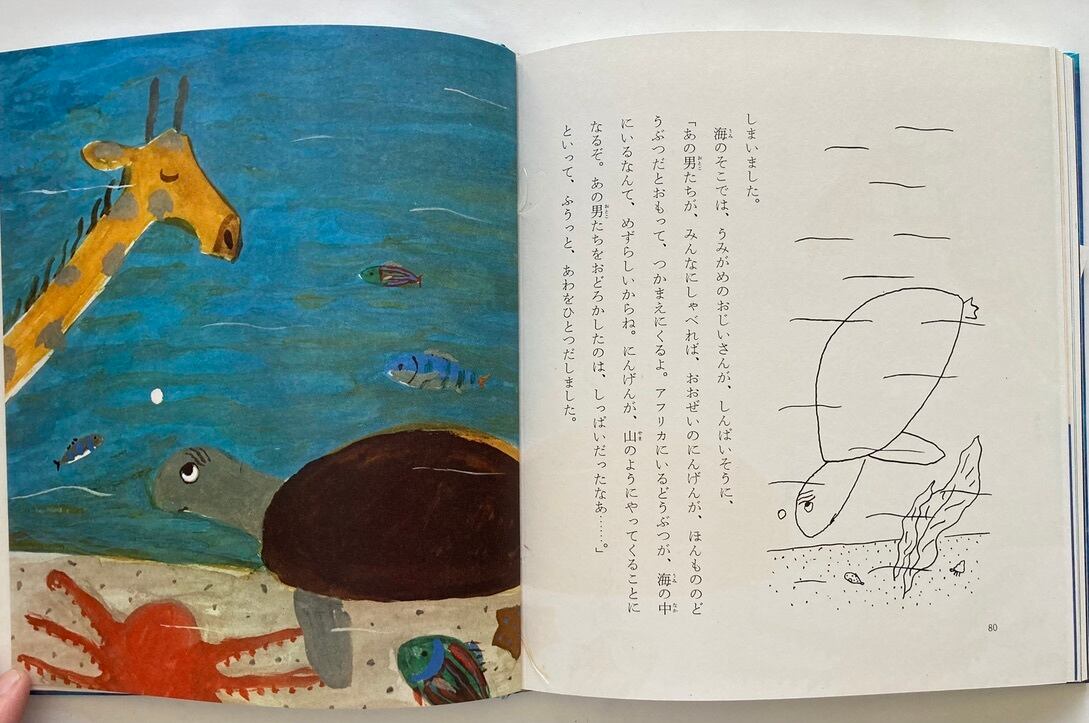 しまいました。
海のそこでは、うみがめのおじいさんが、しんぱいそうに、
「あの男たちが、みんなにしゃべれば、おおぜいのにんげんが、ほんもののど
うぶつだとおもって、つかまえにくるよ。アフリカにいるどうぶつが、海の中
にいるなんて、めずらしいからね。にんげんが、山のようにやってくることに
なるぞ。あの男たちをおどろかしたのは、しっぱいだったなあ……。」
といって、ふうっと、あわをひとつだしました。
80